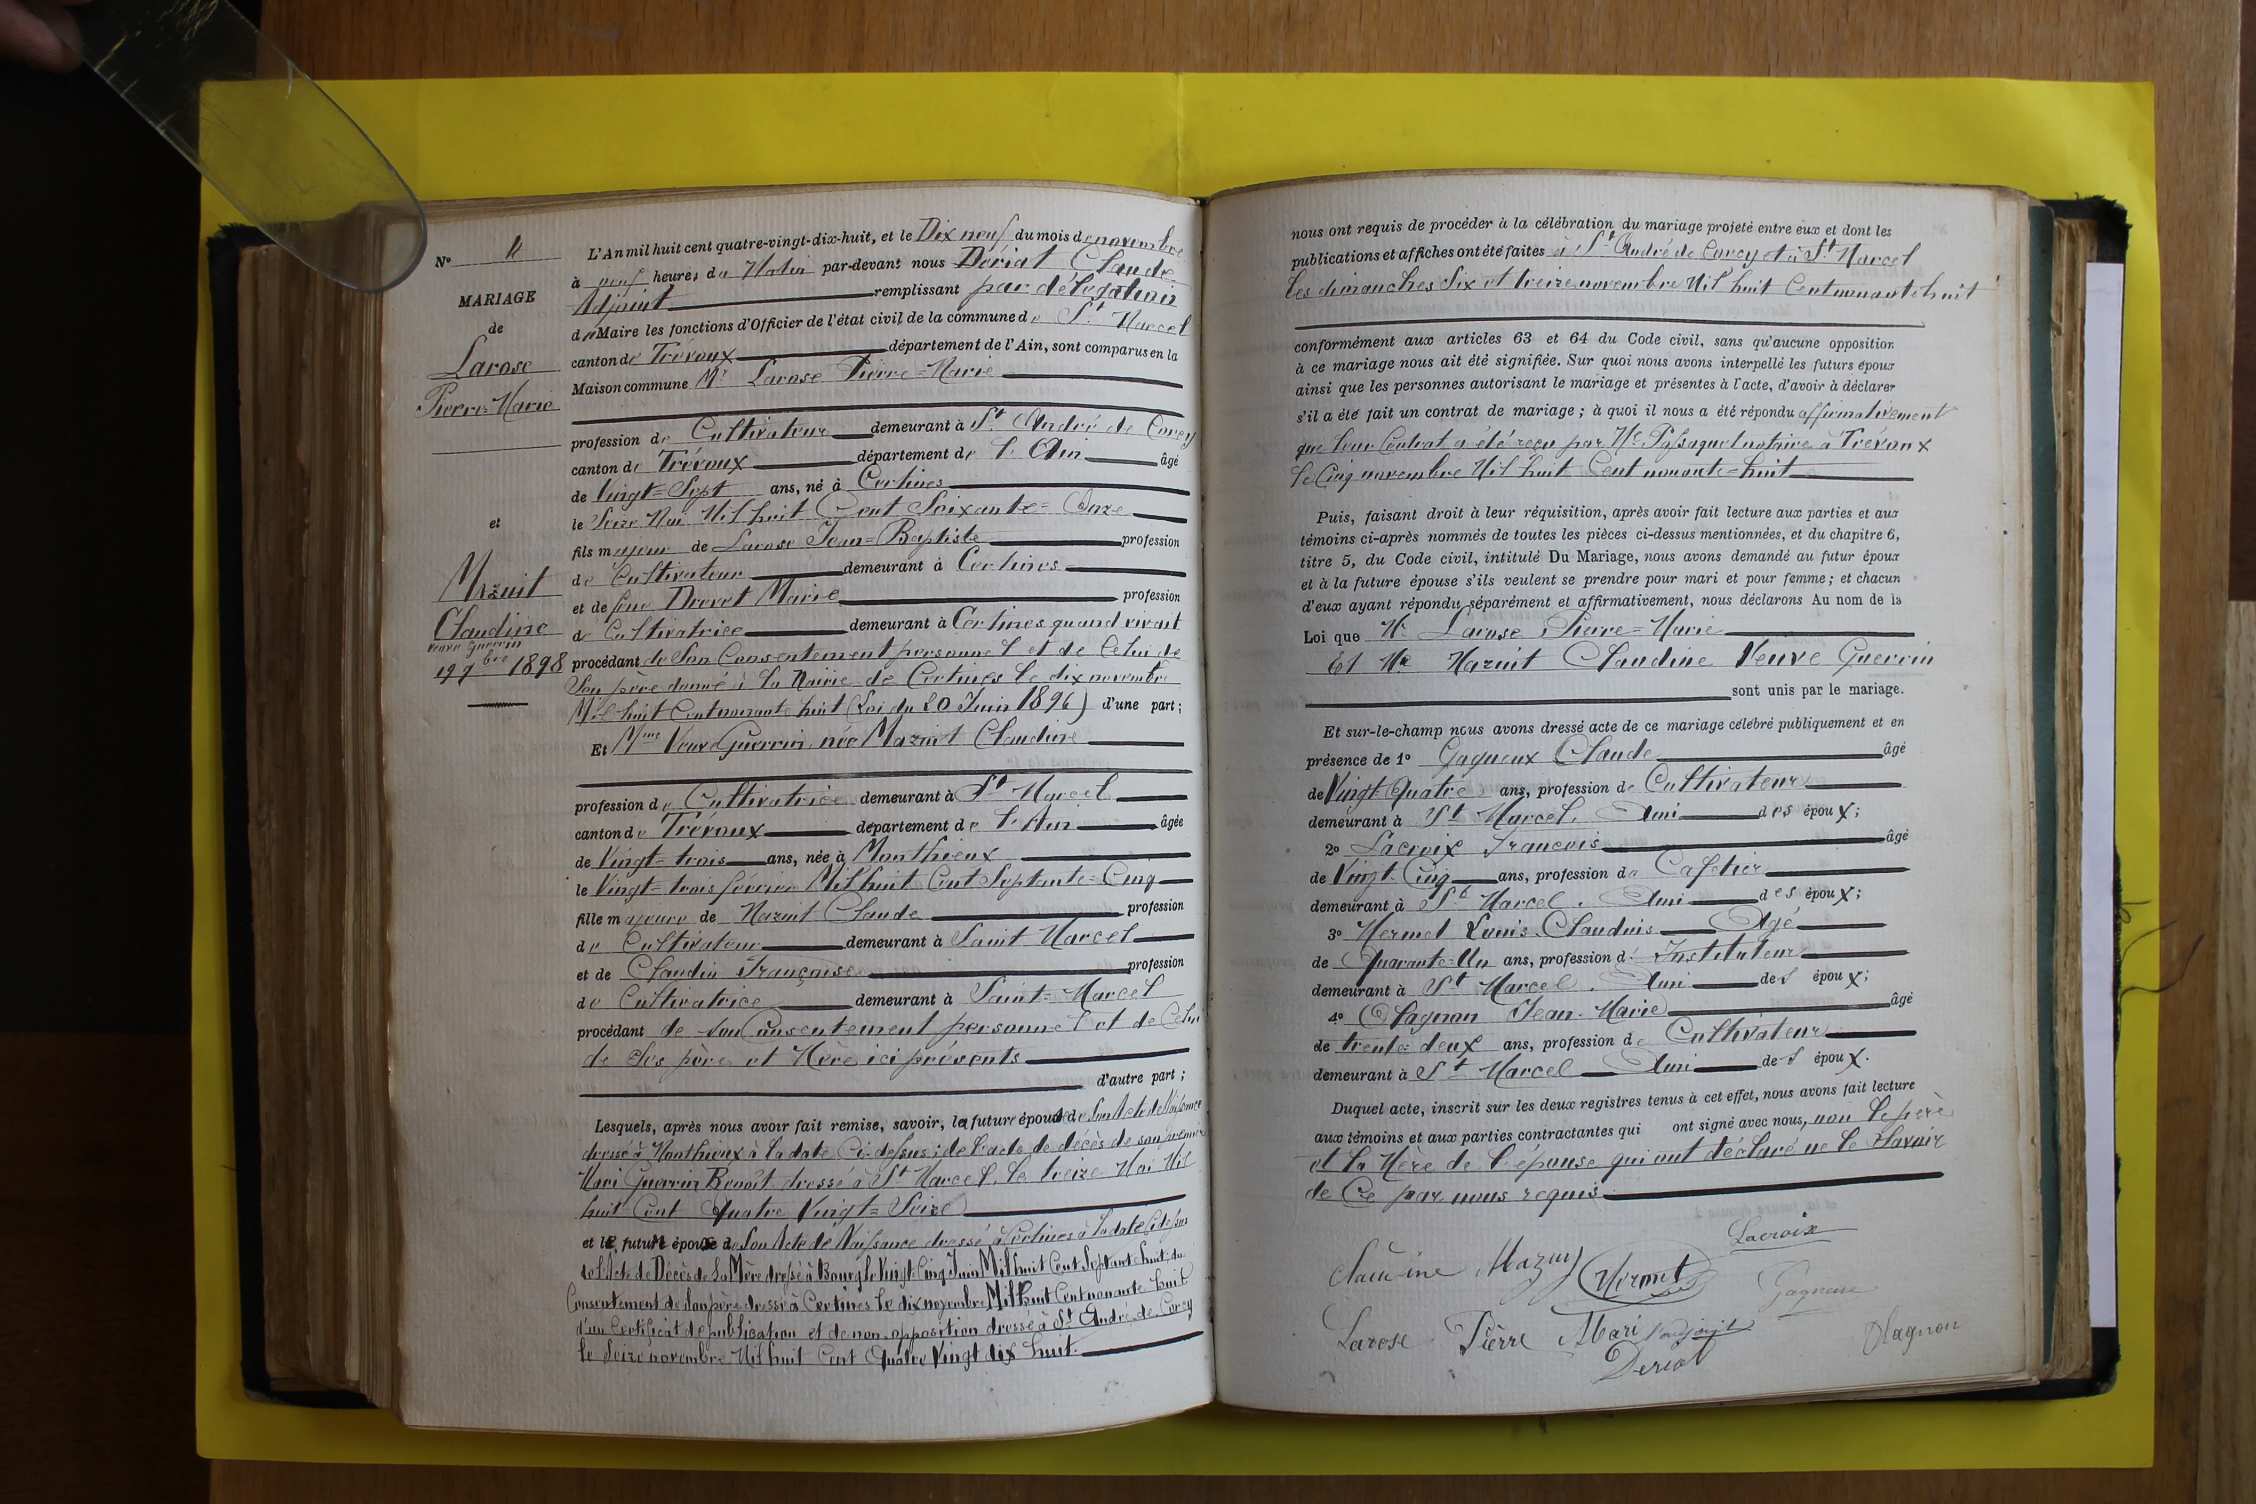 N° 4
MARIAGE
de
Larose
Pierre-Marie
et
Mazuit
Claudine
veuve Guerrin
19 9bre 1898
L'An mil huit cent quatre-vingt-dix-huit, et le Dix neuf du mois de novembre
à neuf heures du Matin par-devant nous Dériat Claude
Adjoint remplissant par délégation
du Maire les fonctions d'Officier de l'état civil de la commune de St Marcel
canton de Trévoux département de l'Ain, sont comparus en la
Maison commune Mr Larose Pierre=Marie
profession de Cultivateur demeurant à St André de Corcy
canton de Trévoux département de l'Ain âgé
de Vingt=Sept ans, né à Certines
le Seize Mai Mil huit Cent Soixante=Onze
fils majeur de Larose Jean=Baptiste profession
de Cultivateur demeurant à Certines
et de feue Drevet Marie profession
de Cultivatrice demeurant à Certines quand vivait
procédant de Son Consentement personnel et de Celui de
Son père donné à la Mairie de Certines le dix novembre
Mil huit Cent nonante huit (Loi du 20 Juin 1896) d'une part ;
Et Mme Veuve Guerrin née Mazuit Claudine
profession de Cultivatrice demeurant à St Marcel
canton de Trévoux département de l'Ain âgée
de Vingt=trois ans, née à Monthieux
le Vingt=trois février Mil huit Cent Septante=Cinq
fille majeure de Mazuit Claude profession
de Cultivateur demeurant à Saint Marcel
et de Claudin Françoise profession
de Cultivatrice demeurant à Saint=Marcel
procédant de son Consentement personnel et de Celui
de Ses père et Mère ici présents
d'autre part ;
Lesquels, après nous avoir fait remise, savoir, la future épouse de Son Acte de Naissance
dressé à Monthieux à la date Ci-dessus ; de l'acte de décès de son premier
Mari Guerrin Benoît dressé à St Marcel, le treize Mai Mil
huit Cent Quatre Vingt=Seize
et le futur époux de Son Acte de Naissance dressé à Certines à la date Ci dessus
de l'Acte de Décès de Sa Mère dressé à Bourg le Vingt-Cinq Juin Mil huit Cent Septante huit ; du
Consentement de Son père dressé à Certines le dix novembre Mil huit Cent nonante huit
d'un Certificat de publication et de non-opposition dressé à St André de Corcy
le Seize novembre Mil huit Cent Quatre Vingt dix huit.
nous ont requis de procéder à la célébration du mariage projeté entre eux et dont les
publications et affiches ont été faites à St André de Corcy et à St Marcel
les dimanches Six et treize novembre Mil huit Cent nonante huit
conformément aux articles 63 et 64 du Code civil, sans qu'aucune opposition
à ce mariage nous ait été signifiée. Sur quoi nous avons interpellé les futurs époux
ainsi que les personnes autorisant le mariage et présentes à l'acte, d'avoir à déclarer
s'il a été fait un contrat de mariage ; à quoi il nous a été répondu affirmativement
que leur Contrat a été reçu par Me Passaquet notaire à Trévoux
le Cinq novembre Mil huit Cent nonante=huit
Puis, faisant droit à leur réquisition, après avoir fait lecture aux parties et aux
témoins ci-après nommés de toutes les pièces ci-dessus mentionnées, et du chapitre 6,
titre 5, du Code civil, intitulé Du Mariage, nous avons demandé au futur époux
et à la future épouse s'ils veulent se prendre pour mari et pour femme ; et chacun
d'eux ayant répondu séparément et affirmativement, nous déclarons Au nom de la
Loi que Mr Larose Pierre=Marie
Et Me Mazuit Claudine Veuve Guerrin
sont unis par le mariage.
Et sur-le-champ nous avons dressé acte de ce mariage célébré publiquement et en
présence de 1° Gagneux Claude âgé
de Vingt Quatre ans, profession de Cultivateur
demeurant à St Marcel, Ami des époux ;
2° Lacroix François âgé
de Vingt-Cinq ans, profession de Cafetier
demeurant à St Marcel, Ami des époux ;
3° Mermet Louis-Claudius Agé
de Quarante=Un ans, profession d'Instituteur
demeurant à St Marcel, Ami des époux ;
4° Olagnon Jean-Marie âgé
de trente=deux ans, profession de Cultivateur
demeurant à St Marcel Ami des époux.
Duquel acte, inscrit sur les deux registres tenus à cet effet, nous avons fait lecture
aux témoins et aux parties contractantes qui ont signé avec nous, non le père
et la Mère de l'épouse qui ont déclaré ne le Savoir
de Ce par nous requis
Lacroix
Claudine Mazuy Mermet Gagneux
Larose Pierre Mari Olagnon
Deriat